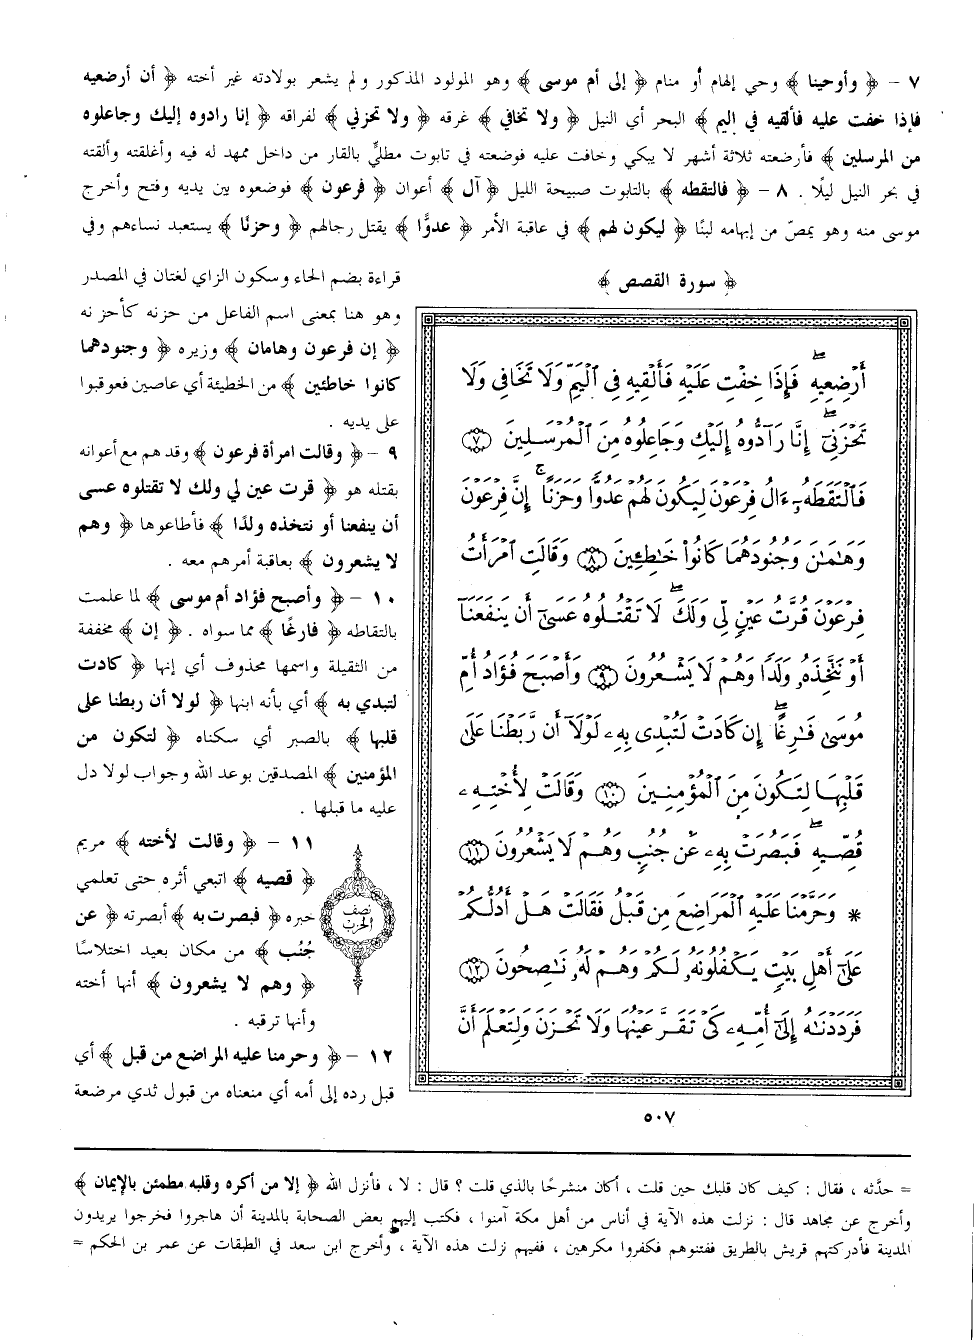 ٧ - ﴿ وأوحينا ﴾ وحي إلهام أو منام ﴿ إلى أم موسى ﴾ وهو المولود المذكور ولم يشعر بولادته غير أخته ﴿ أن أرضعيه
فإذا خفت عليه فألقيه في اليم ﴾ البحر أي النيل ﴿ ولا تخافي ﴾ غرقه ﴿ ولا تحزني ﴾ لفراقه ﴿ إنا رادوه إليك وجاعلوه
من المرسلين ﴾ فأرضعته ثلاثة أشهر لا يبكي وخافت عليه فوضعته في تابوت مطليٍّ بالقار من داخل ممهد له فيه وأغلقته وألقته
في بحر النيل ليلًا . ٨ - ﴿ فالتقطه ﴾ بالتابوت صبيحة الليل ﴿ آل ﴾ أعوان ﴿ فرعون ﴾ فوضعوه بين يديه وفتح وأخرج
موسى منه وهو يمصّ من إبهامه لبنًا ﴿ ليكون لهم ﴾ في عاقبة الأمر ﴿ عدوًّا ﴾ يقتل رجالهم ﴿ وحزنًا ﴾ يستعبد نساءهم وفي
قراءة بضم الحاء وسكون الزاي لغتان في المصدر
وهو هنا بمعنى اسم الفاعل من حزنه كأحزنه
﴿ إن فرعون وهامان ﴾ وزيره ﴿ وجنودهما
كانوا خاطئين ﴾ من الخطيئة أي عاصين فعوقبوا
على يديه .
٩ - ﴿ وقالت امرأة فرعون ﴾ وقد هم مع أعوانه
بقتله هو ﴿ قرت عين لي ولك لا تقتلوه عسى
أن ينفعنا أو نتخذه ولدًا ﴾ فأطاعوها ﴿ وهم
لا يشعرون ﴾ بعاقبة أمرهم معه .
١٠ - ﴿ وأصبح فؤاد أم موسى ﴾ لما علمت
بالتقاطه ﴿ فارغًا ﴾ مما سواه . ﴿ إن ﴾ مخففة
من الثقيلة واسمها محذوف أي إنها ﴿ كادت
لتبدي به ﴾ أي بأنه ابنها ﴿ لولا أن ربطنا على
قلبها ﴾ بالصبر أي سكناه ﴿ لتكون من
المؤمنين ﴾ المصدقين بوعد الله وجواب لولا دل
عليه ما قبلها .
١١ - ﴿ وقالت لأخته ﴾ مريم
﴿ قصيه ﴾ اتبعي أثره حتى تعلمي
خبره ﴿ فبصرت به ﴾ أبصرته ﴿ عن
جُنُب ﴾ من مكان بعيد اختلاسًا
﴿ وهم لا يشعرون ﴾ أنها أخته
وأنها ترقبه .
١٢ - ﴿ وحرمنا عليه المراضع من قبل ﴾ أي
قبل رده إلى أمه أي منعناه من قبول ثدي مرضعة
نصف
الحزب
﴿ سورة القصص ﴾
أَرْضِعِيهِ ۖ فَإِذَا خِفْتِ عَلَيْهِ فَأَلْقِيهِ فِى ٱلْيَمِّ وَلَا تَخَافِى وَلَا
تَحْزَنِىٓ ۖ إِنَّا رَآدُّوهُ إِلَيْكِ وَجَاعِلُوهُ مِنَ ٱلْمُرْسَلِينَ ٧
فَٱلْتَقَطَهُۥٓ ءَالُ فِرْعَوْنَ لِيَكُونَ لَهُمْ عَدُوًّا وَحَزَنًا ۗ إِنَّ فِرْعَوْنَ
وَهَٰمَٰنَ وَجُنُودَهُمَا كَانُوا۟ خَٰطِـِٔينَ ٨ وَقَالَتِ ٱمْرَأَتُ
فِرْعَوْنَ قُرَّتُ عَيْنٍ لِّى وَلَكَ ۖ لَا تَقْتُلُوهُ عَسَىٰٓ أَن يَنفَعَنَآ
أَوْ نَتَّخِذَهُۥ وَلَدًا وَهُمْ لَا يَشْعُرُونَ ٩ وَأَصْبَحَ فُؤَادُ أُمِّ
مُوسَىٰ فَٰرِغًا ۖ إِن كَادَتْ لَتُبْدِى بِهِۦ لَوْلَآ أَن رَّبَطْنَا عَلَىٰ
قَلْبِهَا لِتَكُونَ مِنَ ٱلْمُؤْمِنِينَ ١٠ وَقَالَتْ لِأُخْتِهِۦ
قُصِّيهِ ۖ فَبَصُرَتْ بِهِۦ عَن جُنُبٍ وَهُمْ لَا يَشْعُرُونَ ١١
* وَحَرَّمْنَا عَلَيْهِ ٱلْمَرَاضِعَ مِن قَبْلُ فَقَالَتْ هَلْ أَدُلُّكُمْ
عَلَىٰٓ أَهْلِ بَيْتٍ يَكْفُلُونَهُۥ لَكُمْ وَهُمْ لَهُۥ نَٰصِحُونَ ١٢
فَرَدَدْنَٰهُ إِلَىٰٓ أُمِّهِۦ كَىْ تَقَرَّ عَيْنُهَا وَلَا تَحْزَنَ وَلِتَعْلَمَ أَنَّ
٥٠٧
= حدَّثه ، فقال : كيف كان قلبك حين قلت ، أكان منشرحًا بالذي قلت ؟ قال : لا ، فأنزل الله ﴿ إلا من أكره وقلبه مطمئن بالإيمان ﴾
وأخرج عن مجاهد قال : نزلت هذه الآية في أناس من أهل مكة آمنوا ، فكتب إليهم بعض الصحابة بالمدينة أن هاجروا فخرجوا يريدون
المدينة فأدركتهم قريش بالطريق ففتنوهم فكفروا مكرهين ، ففيهم نزلت هذه الآية ، وأخرج ابن سعد في الطبقات عن عمر بن الحكم =